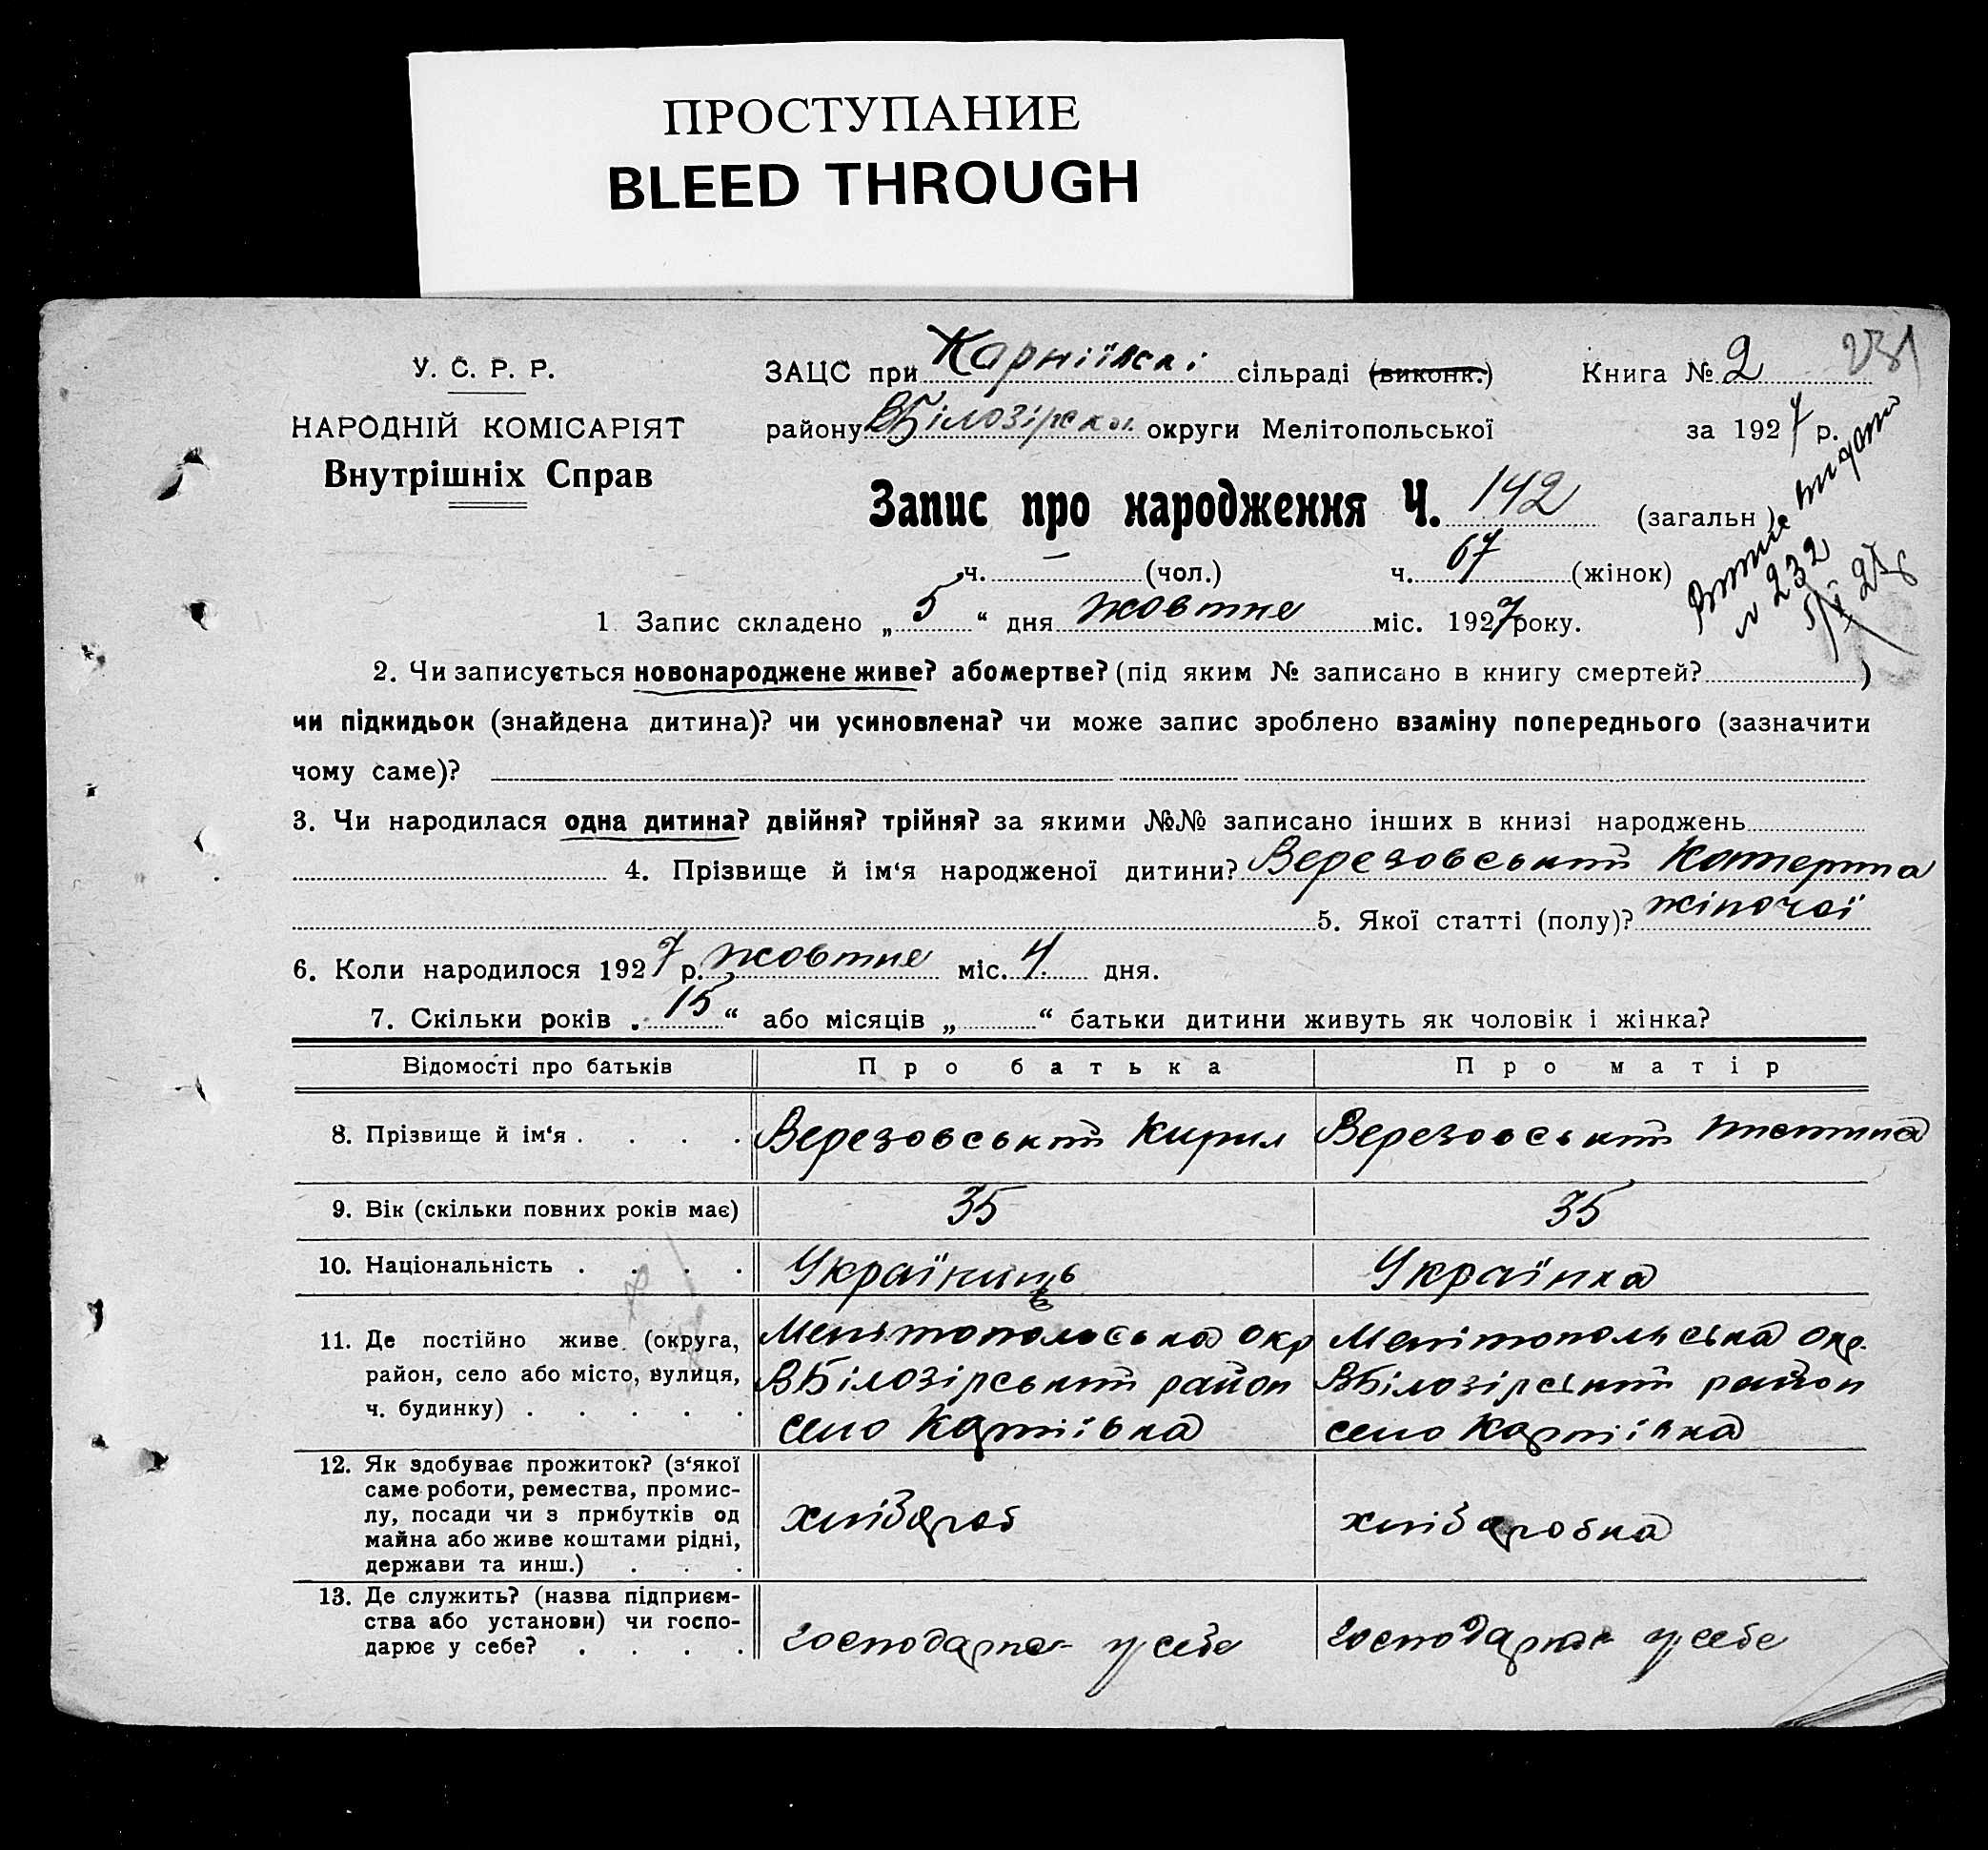 ПРОСТУПАНИЕ
BLEED THROUGH
231
У. С. Р. Р.
НАРОДНІЙ КОМІСАРІЯТ
Внутрішніх Справ
ЗАЦС при сільраді (виконк.) Книга № 2
району ВБілозірськ округи Мелітопольської за 1927 р.
Запис про народження Ч. 142 (загальн.)
ч. — (чол.) ч. 67 (жінок)
№ 232
1 Запис складено „ 5 “ дня жовтне міс. 1927 року.
2. Чи записується новонароджене живе? або мертве? (під яким № записано в книгу смертей? )
чи підкидьок (знайдена дитина)? чи усиновлена? чи може запис зроблено взаміну попереднього (зазначити
чому саме)?
3. Чи народилася одна дитина? двійня? трійня? за якими №№ записано інших в книзі народжень
4. Прізвище й ім‘я народженої дитини? Верезовський Катерина
5. Якої статті (полу)? жіночої
6. Коли народилося 1927 р. жовтне міс. 4 дня.
7. Скільки років „ 15 “ або місяців „ “ батьки дитини живуть як чоловік і жінка?
Відомості про батьків Про батька Про матір
8. Прізвище й ім‘я . . . . Верезовський Кирил Верезовський
9. Вік (скільки повних років має) 35 35
10. Національність . . . . Україниць Українка
11. Де постійно живе (округа, Мелітопольська окр Мелітопольська окр.
район, село або місто, вулиця, ВБілозірський район ВБілозірський район
ч. будинку) . . . . . село село
12. Як здобуває прожиток? (з‘якої
саме роботи, ремества, промис-
лу, посади чи з прибутків од хлібороб хлібаробка
майна або живе коштами рідні,
держави та инш.) . . .
13. Де служить? (назва підприєм-
ства або установи) чи госпо-
дарює у себе? . . . . господарює у себе господарює у себе